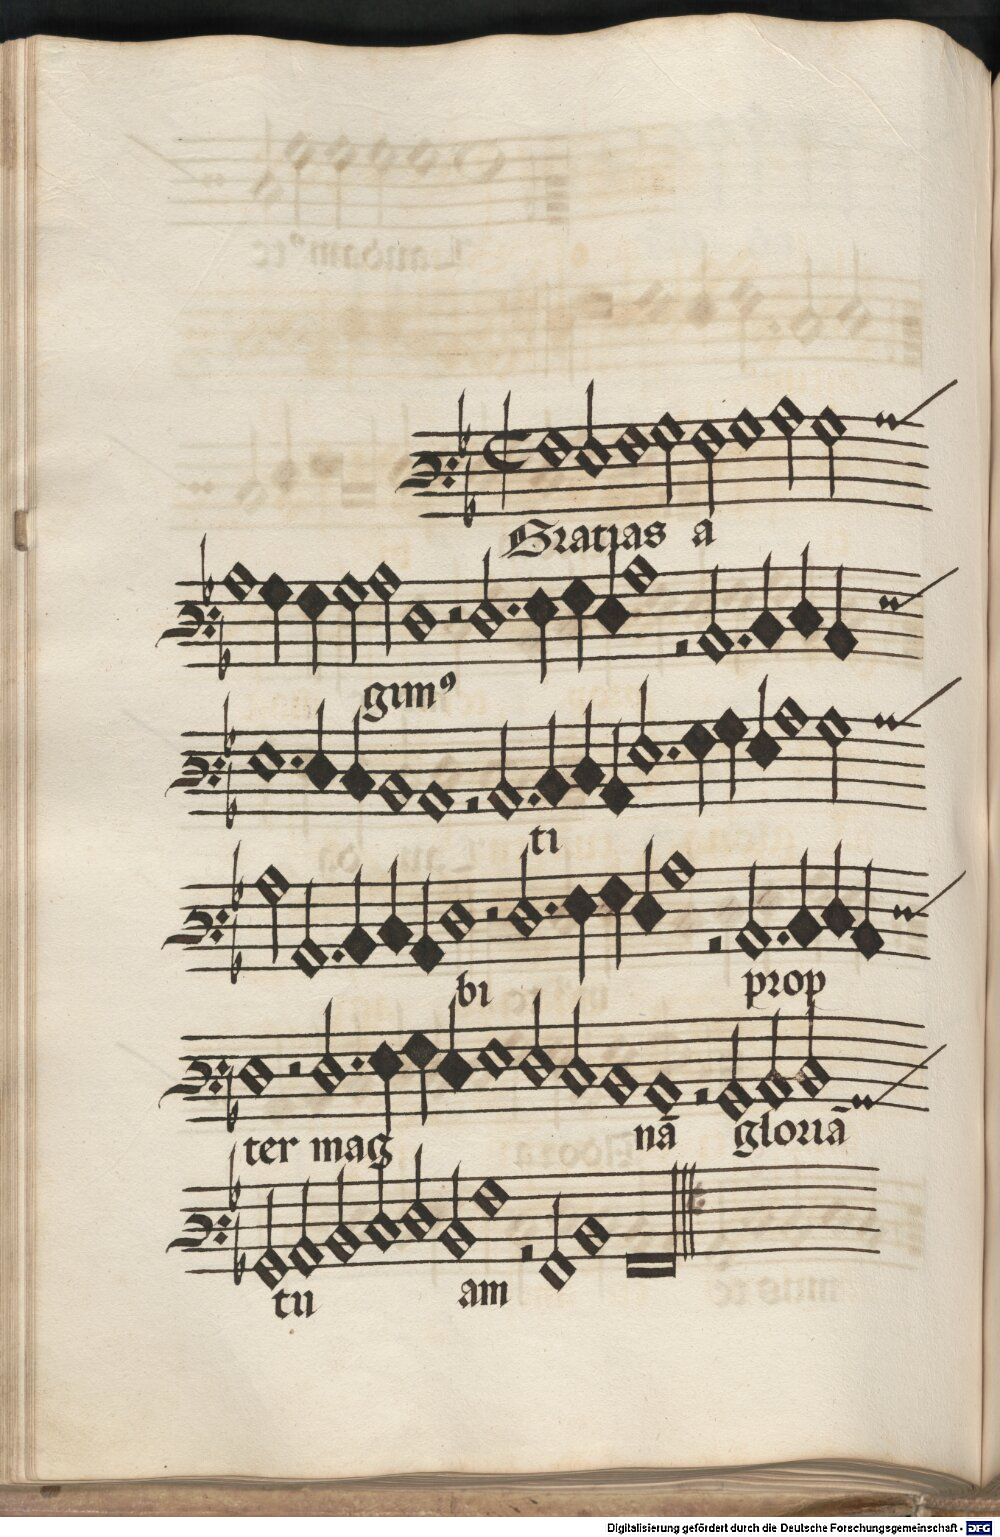 Gratias a
gim⁹
ti
bi prop
ter mag nā gloriā
tu am
Digitalisierung gefördert durch die Deutsche Forschungsgemeinschaft - DFG